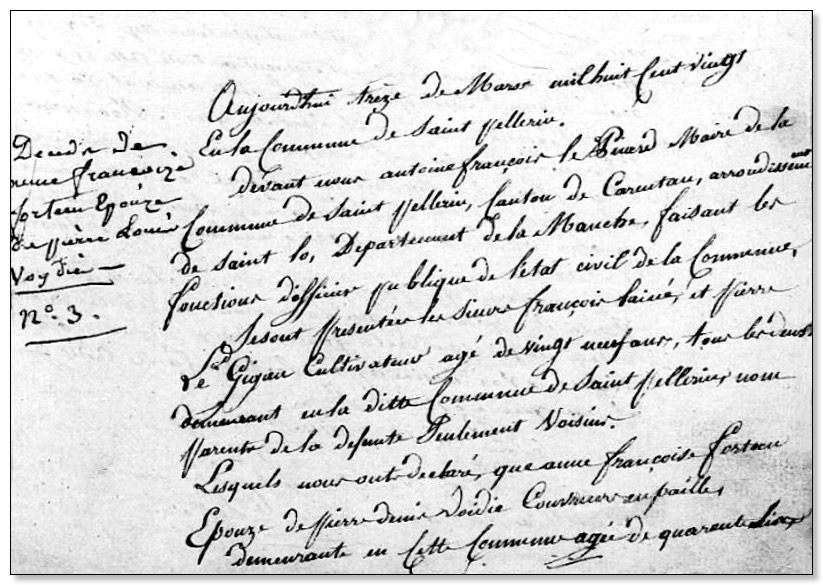 Aujourdhui treze de Mars mil huit Cent vingt
En la Commune de saint pellerin.
devant nous antoine françois le Pinard Maire de la
Commune de saint pellerin, Canton de Carentan, arrondissement
de saint lo, Departement de la Manche, faisant les
fonctions d'officier publique de l'etat civil de la Commune,
se sont presentés les sieurs françois lainé, et pierre
le Gigan Cultivateur agé de vingt neuf ans, tous les deux
demeurant en la ditte Commune de saint pellerin, nom
parents de la defunte seulement Voisins.
Lesquels nous onts declaré, que anne françoise forteen
Epouze de pierre denis Voidie Couvreur en paille,
demeurante en Cette Commune agée de quarente
Decedé de
anne francoize
forteen Epouze
de pierre Louis
Voydie
N°. 3.